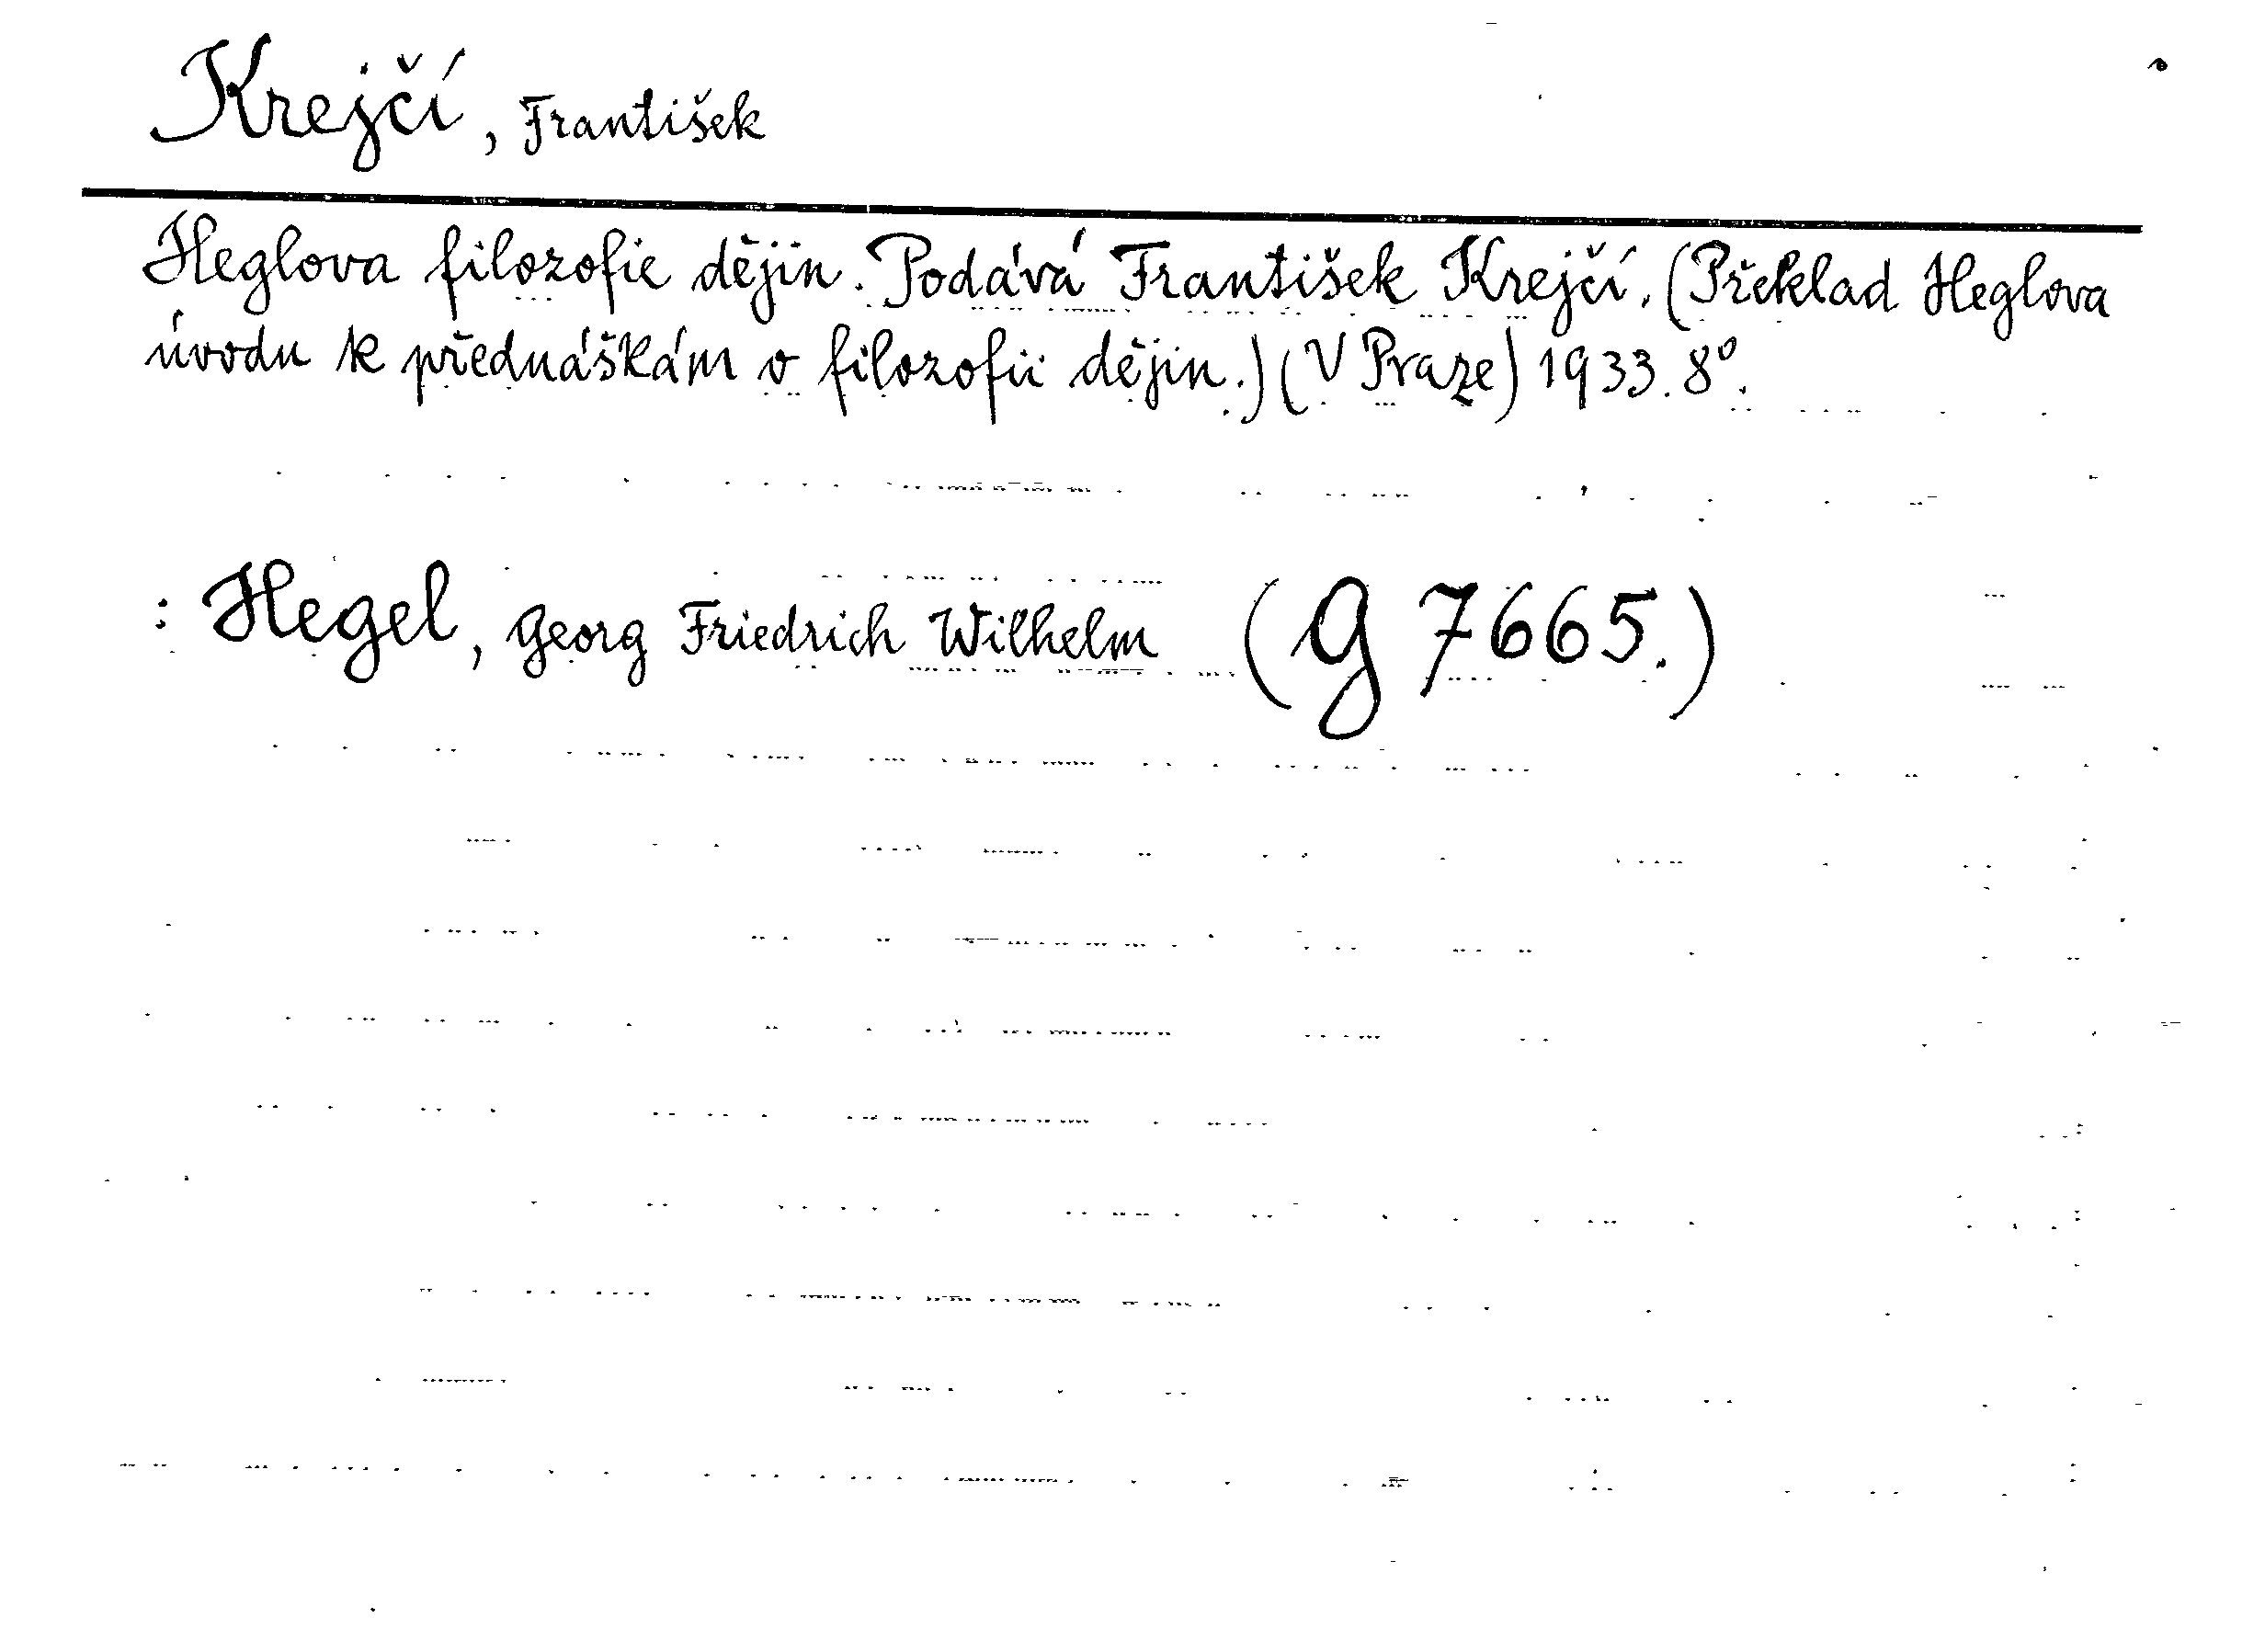 Krejčí, František
Heglova filozofie dějin. Podává František Krejčí. (Překlad Heglova
úvodu k přednáškám o filozofii dějin.) (V Praze) 1933. 8°.
: Hegel, Georg Friedrich Wilhelm (G 7665.)